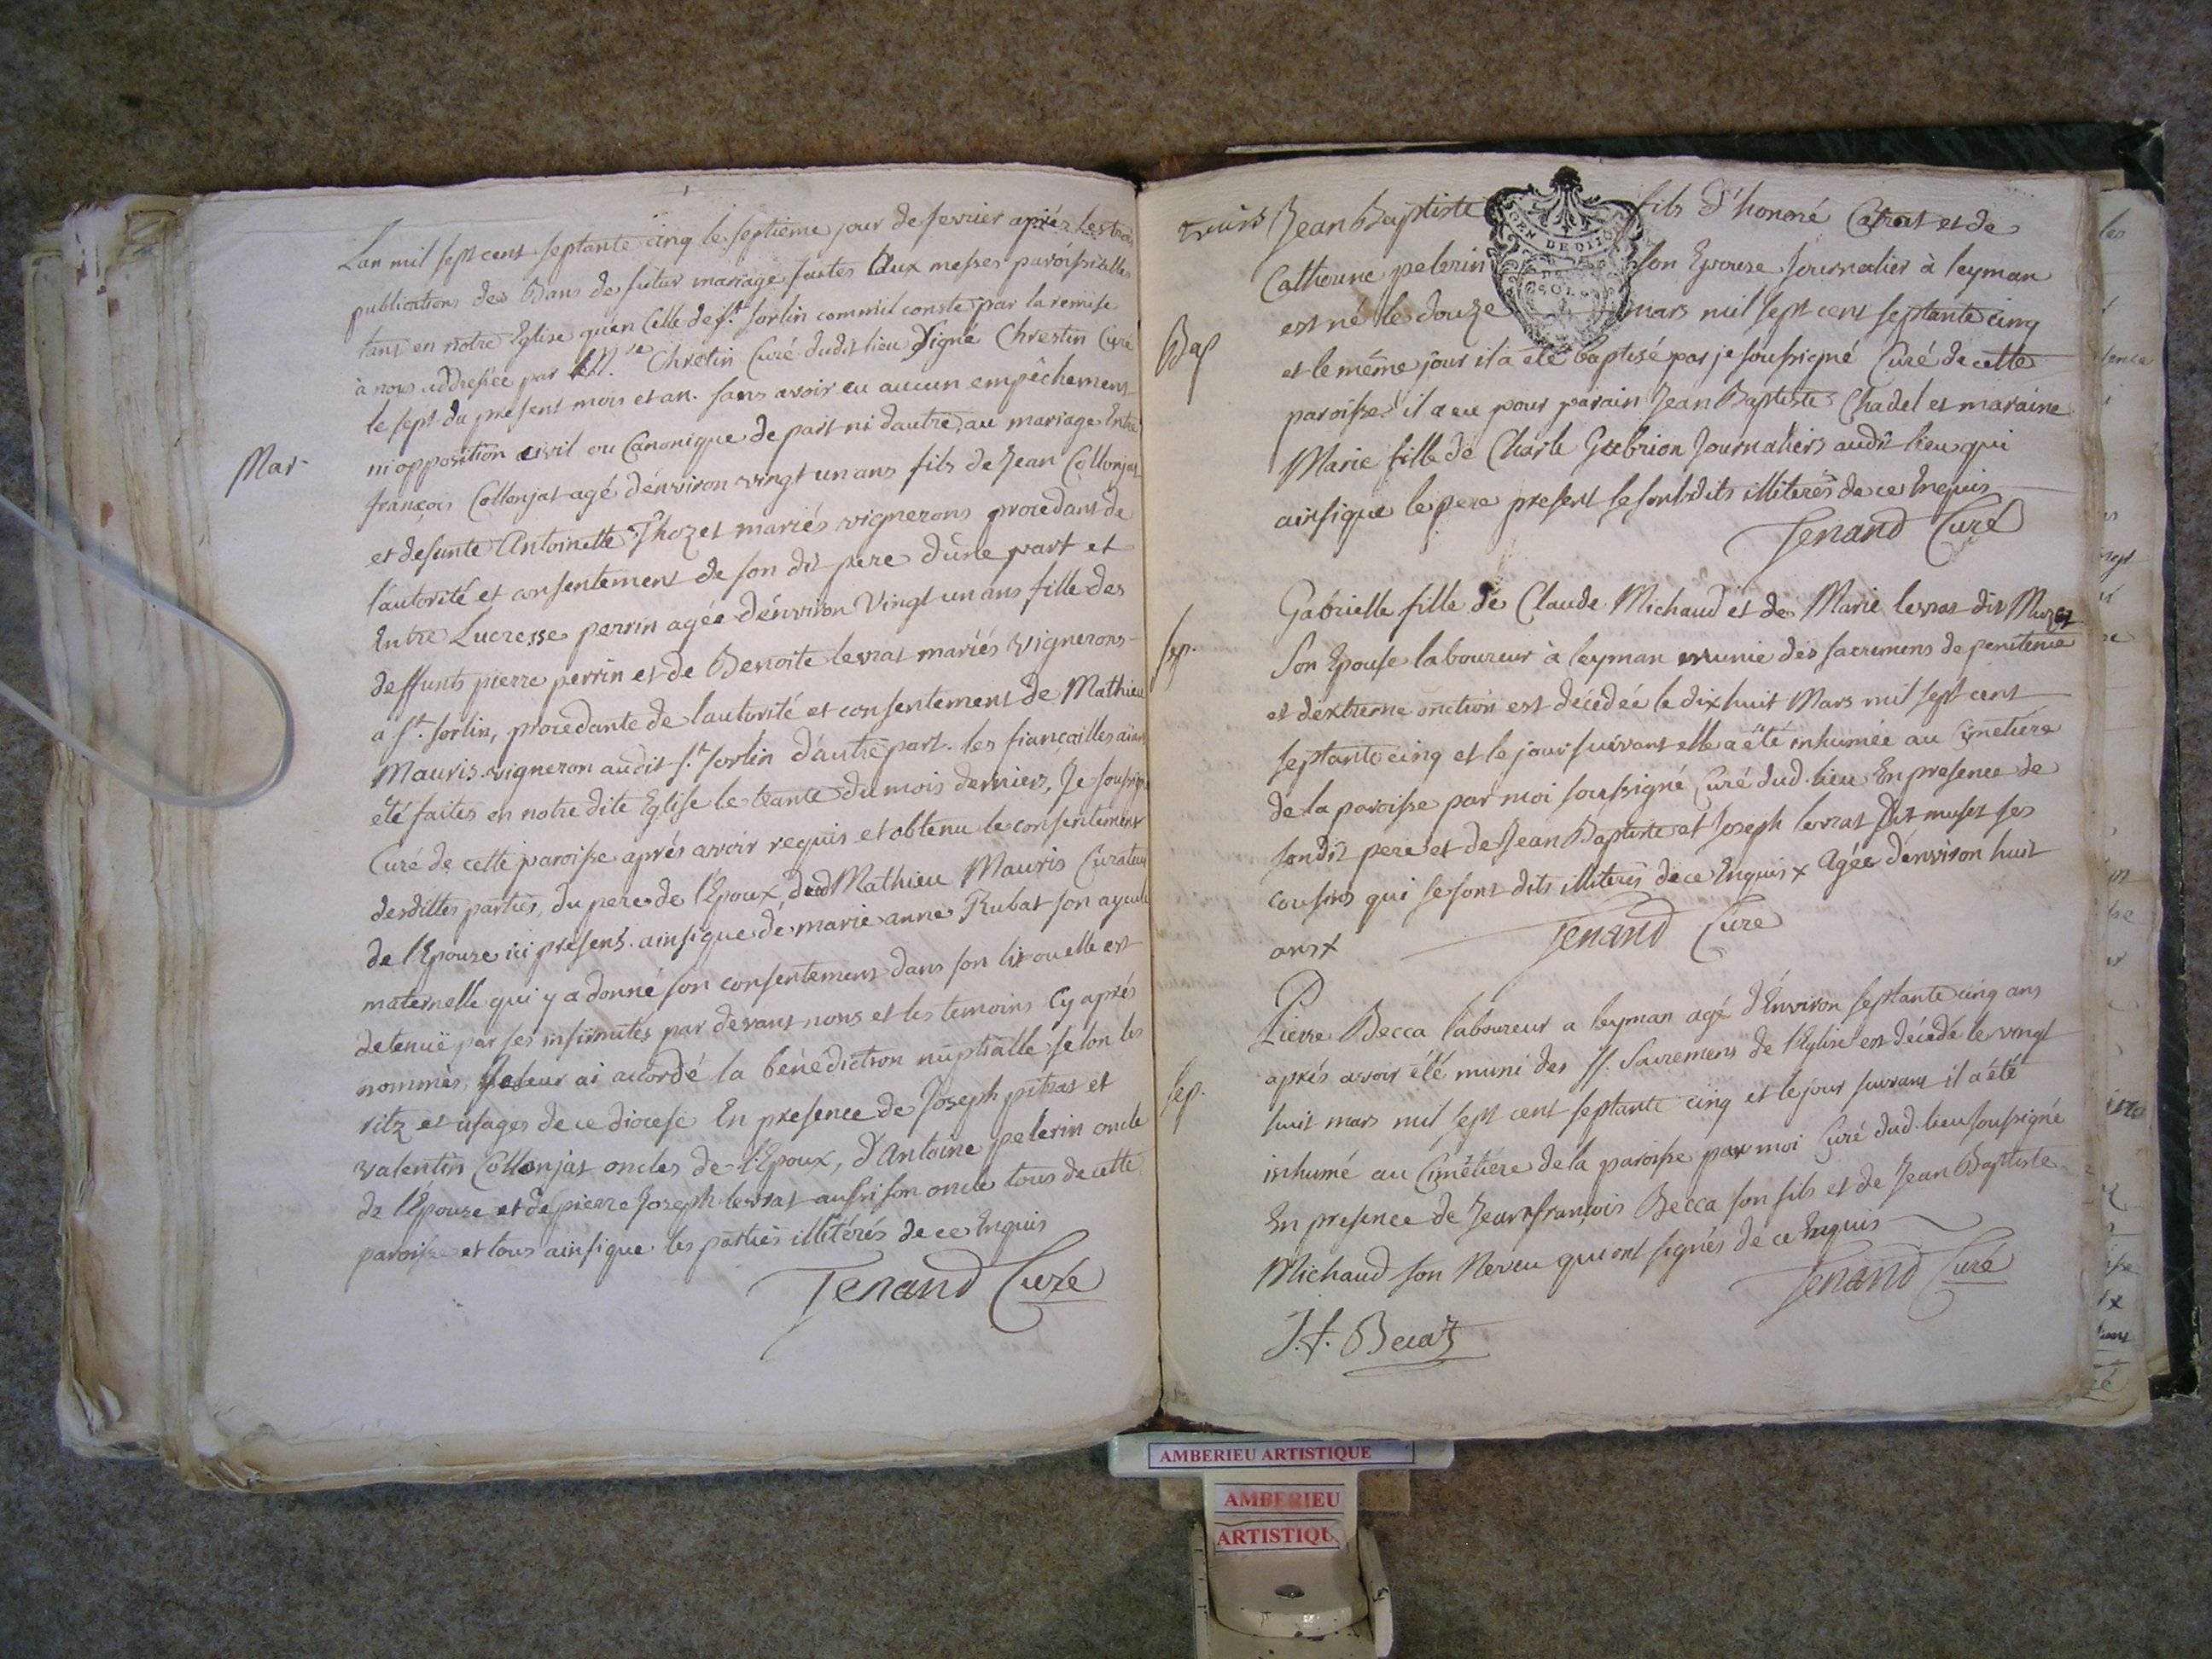 Lan mil sept cent septante cinq le septieme jour de fevrier aprés les trois
publications des Bans de futur mariage faites aux messes paroissialles
tant en notre Eglise quen Celle de st. sorlin comm'il conste par la remise
à nous addressée par Chretin Curé dudit lieu Signé Chrestin Curé
le sept du present mois et an. sans avoir eu aucun empêchement
ni opposition civil ou Canonique de part ni dautre, au mariage Entre
Mar
françois Collonjat agé dénviron vingt un ans fils de Jean Collonjat
et defunte Antoinette Thozet mariés vignerons procedant de
l'autorité et consentement de son dit pere dùne part et
Entre Lucresse perrin agée dénviron Vingt un ans fille des
deffunts pierre perrin et de Benoite levrat mariés vignerons
a st. sorlin, procedante de l'autorité et consentement de Mathieu
Mauris vigneron audit st. sorlin d'autre part. les fiançailles aiant
été faites en notre dite Eglise le trante du mois dernier, Je soussigné
Curé de cette paroisse aprés avoir requis et obtenu le consentement
desdittes parties, du pere de l'Epoux, dud Mathieu Mauris Curateur
de l'Epouse ici présent. ainsique de marie anne Rubat son ayeule
maternelle qui y a donné son consentement dans son lit ou elle est
detenuë par ses infirmités par devant nous et les temoins Cy aprés
nommés, Je leur ai accordé la bénédiction nuptialle selon les
ritz et usages de ce diocese En presence de Joseph pitrat et
valentin Collonjat oncles de l'Epoux, d'Antoine pelerin oncle
de l'Epouse et de pierre Joseph levrat aussi son oncle tous de cette
paroisse et tous ainsique les parties illitérés de ce Enquis
Tenand Curé
Jean Baptiste fils d'honoré Catrat et de
Catherine pelerin son Epouse Journalier à leyman
est né le douze mars mil sept cent septante cinq
Bap
et le même jour il a été baptisé par je soussigné Curé de cette
paroisse il a eu pour parain Jean Baptiste Chadel et maraine
Marie fille de Charle Grebrion Journaliers audit lieu qui
ainsique le pere present se sont dits illiterés de ce Enquis
Tenand Curé
Gabrielle fille de Claude Michaud et de Marie levrat dit Muzet
Sep.
Son Epouse laboureur à leyman munie des sacremens de penitence
et dextreme onction est décedée le dix huit Mars mil sept cent
septante cinq et le jour suivant elle a été inhumée au Cimetiere
de la paroisse par moi soussigné Curé dud. lieu En presence de
sondit pere et de Jean Baptiste et Joseph levrat dit muset ses
cousins qui se sont dits illiterés de ce Enquis x Agée denviron huit
ans x
Tenand Curé
Pierre Becca laboureur a leyman agé d'Environ septante cinq ans
Sep.
aprés avoir été muni des SS. Sacremens de l'Eglise est décédé le vingt
huit mars mil sept cent septante cinq et le jour suivant il a été
inhumé au Cimétiere de la paroisse par moi Curé dud. lieu soussigné
En presence de Jean françois Becca son fils et de Jean Baptiste
Michaud son Neveu qui ont signés de ce Enquis
Tenand Curé
J. f. Becat
AMBERIEU ARTISTIQUE
AMBERIEU
ARTISTIQU